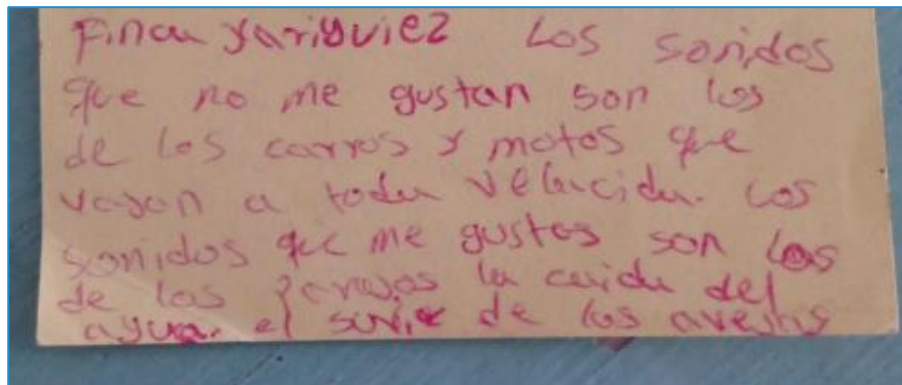 Finca yariguiez Los sonidos
que no me gustan son los
de los carros y motos que
vayan a toda velacida. Los
sonidos que me gustas son los
de los la caida del
agua. el de los avejas